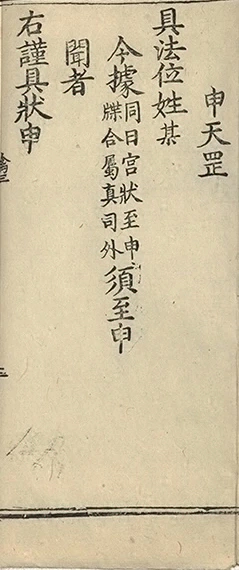 申天罡
具法位姓某
今據同日宮狀至申
牒合屬真司外須至申
聞者
右謹具狀申